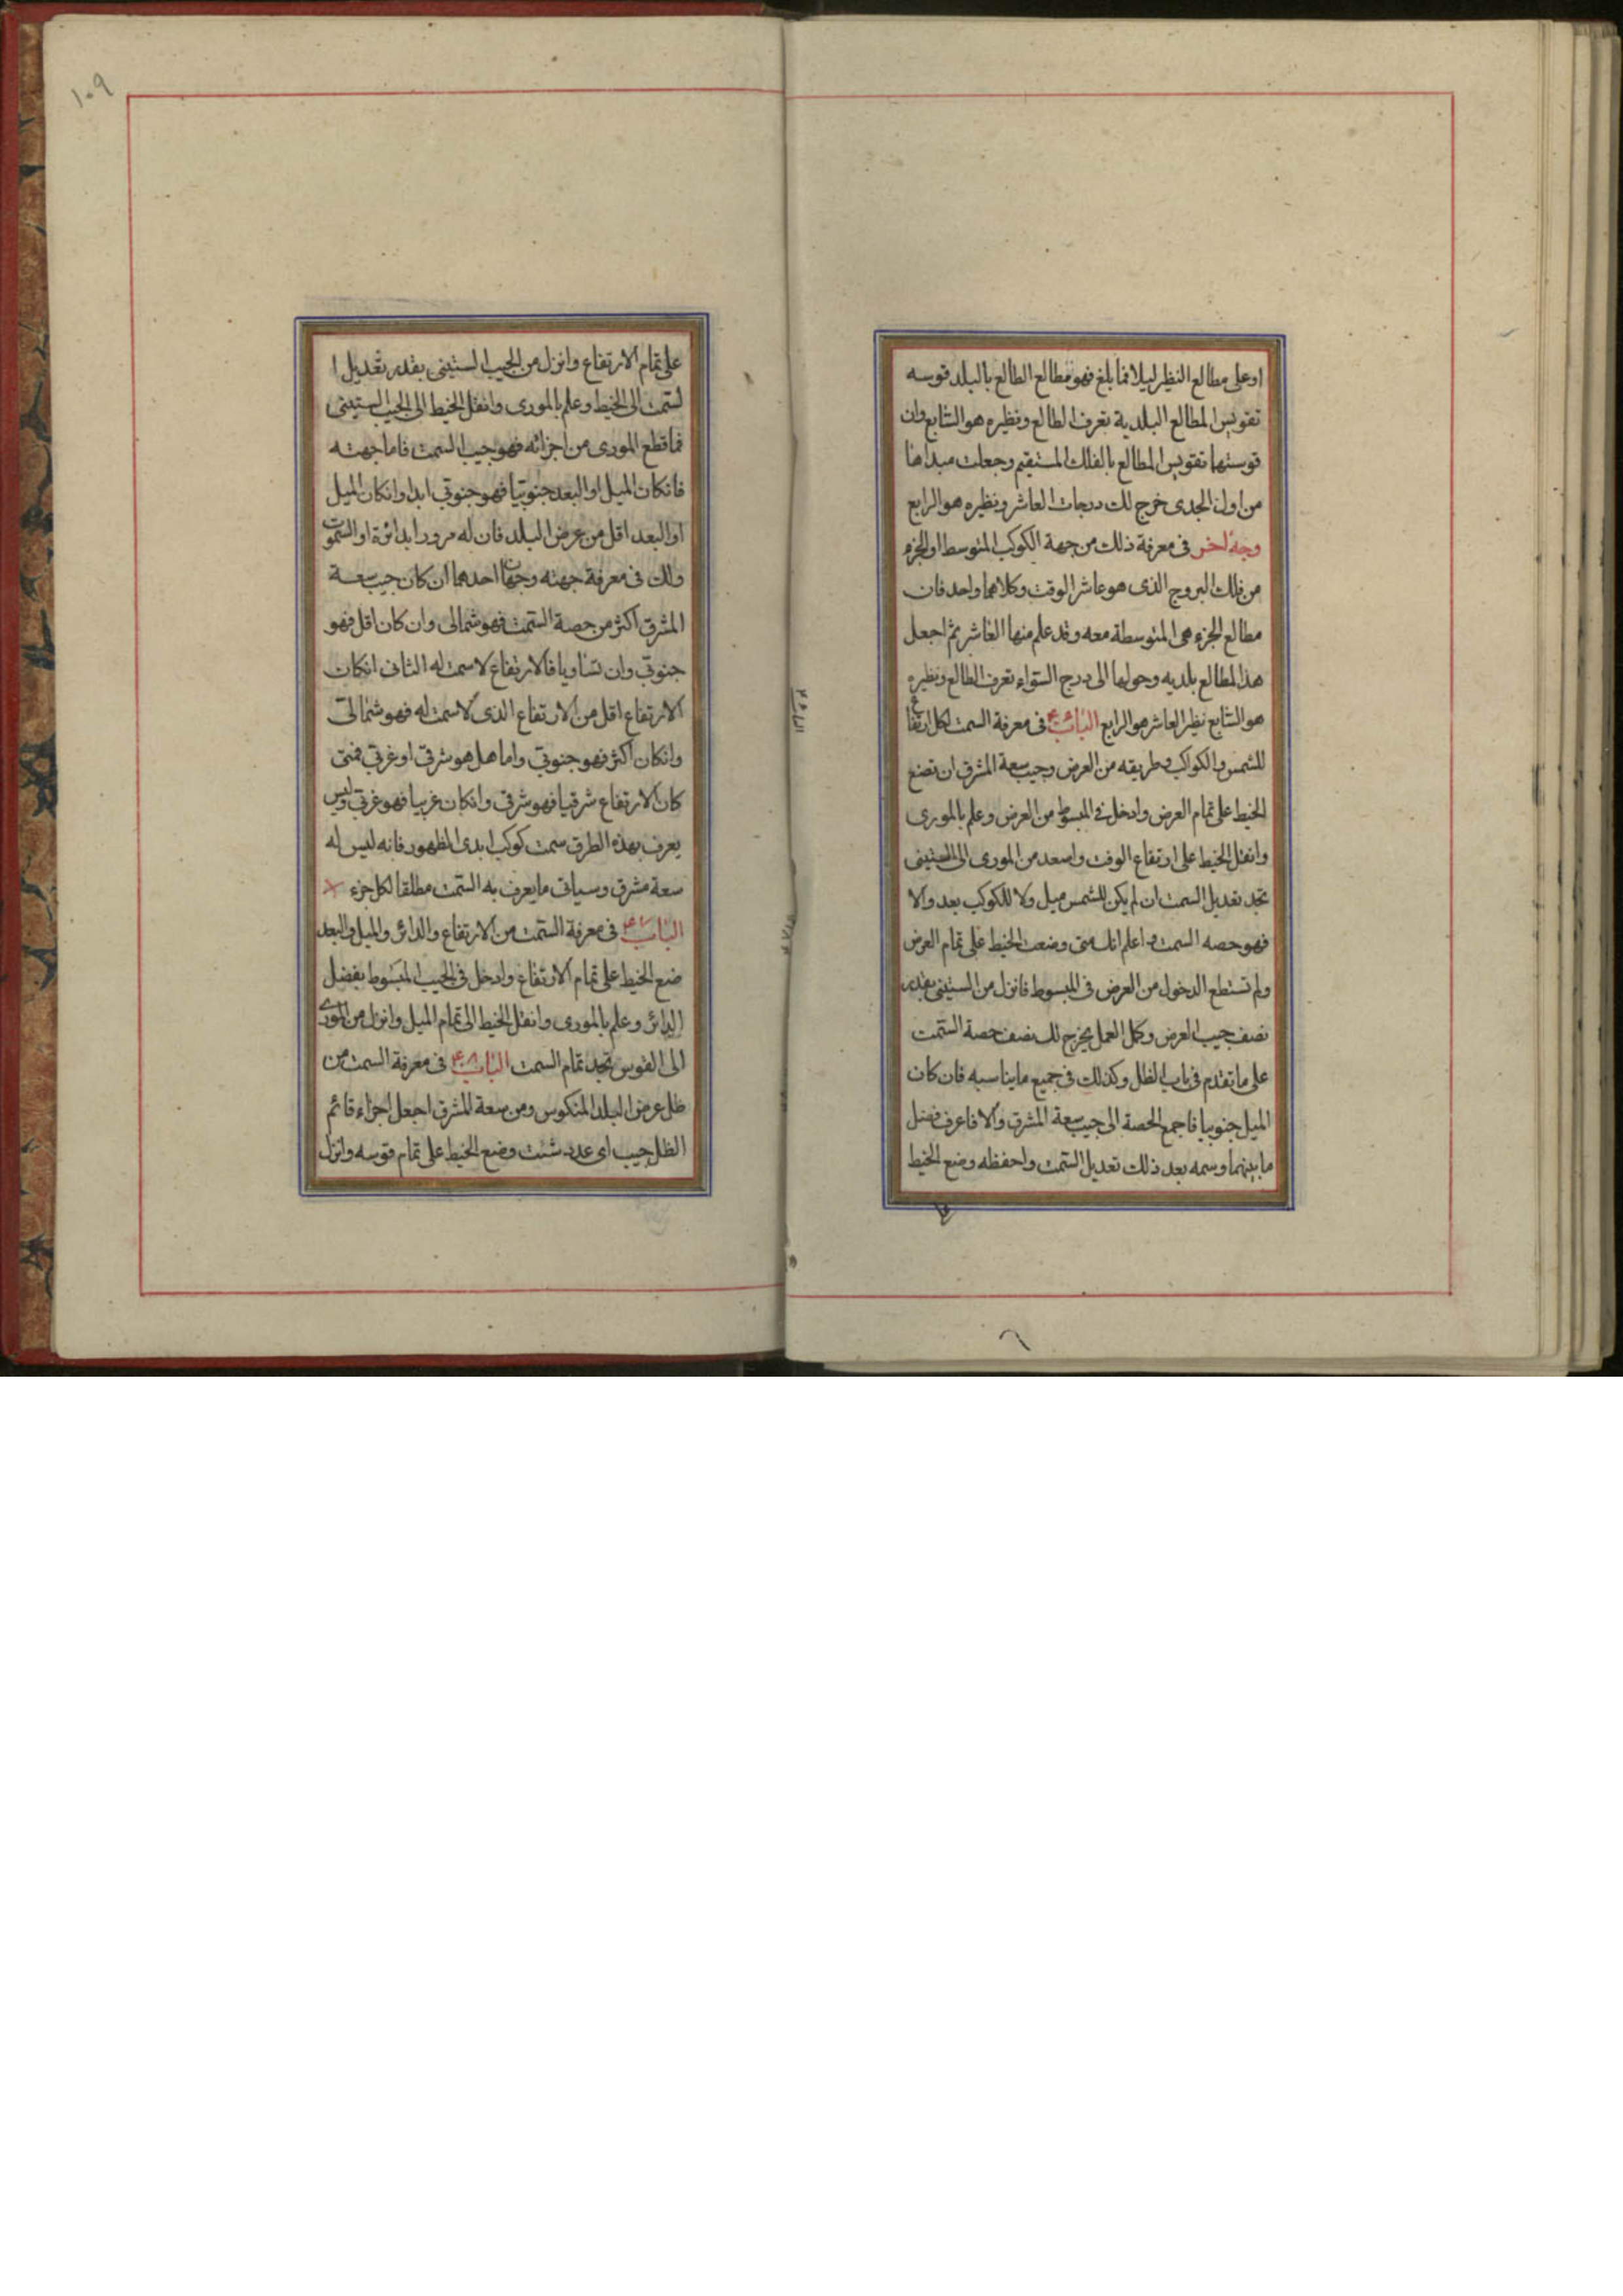 او على مطالع النظير ليلا فما بلغ فهو مطالع الطالع بالبلد قوسه
تقويس المطالع البلدية تعرف الطالع ونظيره هو السابع وان
قوستها تقويس المطالع بالفلك المستقيم وجعلت مبداها
من اول الجدى خرج لك درجات العاشر ونظيره هو الرابع
وجه اخر فى معرفة ذلك من جهة الكوكب المتوسط او الجزء
من فلك البروج الذى هو عاشر الوقت وكلاهما واحد فان
مطالع الجزء هى المتوسطة معه وقد علم منها العاشر ثم اجعل
هذا المطالع بلديه وحولها الى درج السواء تعرف الطالع ونظيره
هو السابع نظير العاشر هو الرابع الباب فى معرفة السمت لكل ارتفاع
للشمس والكواكب وطريقه من العرض وجيب سعة المشرق ان تضع
الخيط على تمام العرض وادخل فى المبسوط من العرض وعلم بالمورى
وانقل الخيط على ارتفاع الوقت واصعد من المورى الى الستينى
تجد تعديل السمت ان لم يكن للشمس ميل ولا للكوكب بعد والا
فهو حصه السمت واعلم انك متى وضعت الخيط على تمام العرض
ولم تستطع الدخول من العرض فى المبسوط فانزل من الستينى بقدر
نصف جيب العرض وكمل العمل يخرج لك نصف حصة السمت
على ما تقدم فى باب الظل وكذلك فى جميع ما يناسبه فان كان
الميل جنوبيا فاجمع الحصة الى جيب سعة المشرق والا فاعرف فضل
ما بينهما وسمه بعد ذلك تعديل السمت واحفظه وضع الخيط
١٠٩
على تمام الارتفاع وانزل من الجيب الستينى بقدر تعديل ا
لسمت الى الخيط وعلم بالمورى وانقل الخيط الى الجيب الستينى
فما قطع المورى من اجزائه فهو جيب السمت فاما جهته
فانكان الميل او البعد جنوبيا فهو جنوبى ابدا وانكان الميل
او البعد اقل من عرض البلد فان له مرورا بدائرة اول السموت
ولك فى معرفة جهته وجهان احدهما ان كان جيب سعة
المشرق اكثر من حصة السمت فهو شمالى وان كان اقل فهو
جنوبى وان تساويا فالارتفاع لا سمت له الثانى انكان
الارتفاع اقل من الارتفاع الذى لا سمت له فهو شمالى
وانكان اكثر فهو جنوبى واما هل هو شرقى او غربى فمتى
كان الارتفاع شرقيا فهو شرقى وانكان غربيا فهو غربى وليس
يعرف بهذه الطرق سمت كوكب ابدى الظهور فانه ليس له
سعة مشرق وسياتى ما يعرف به السمت مطلقا لكل جزء
الباب ٤٧ فى معرفة السمت من الارتفاع والدائر والميل والبعد
ضع الخيط على تمام الارتفاع وادخل فى الجيب المبسوط بفضل
الدائر وعلم بالمورى وانقل الخيط الى تمام الميل وانزل من المورى
الى القوس تجد تمام السمت الباب ٤٨ فى معرفة السمت من
ظل عرض البلد المنكوس ومن سعة المشرق اجعل اجزاء قائم
الظل جيب اى عدد شئت وضع الخيط على تمام قوسه وانزل